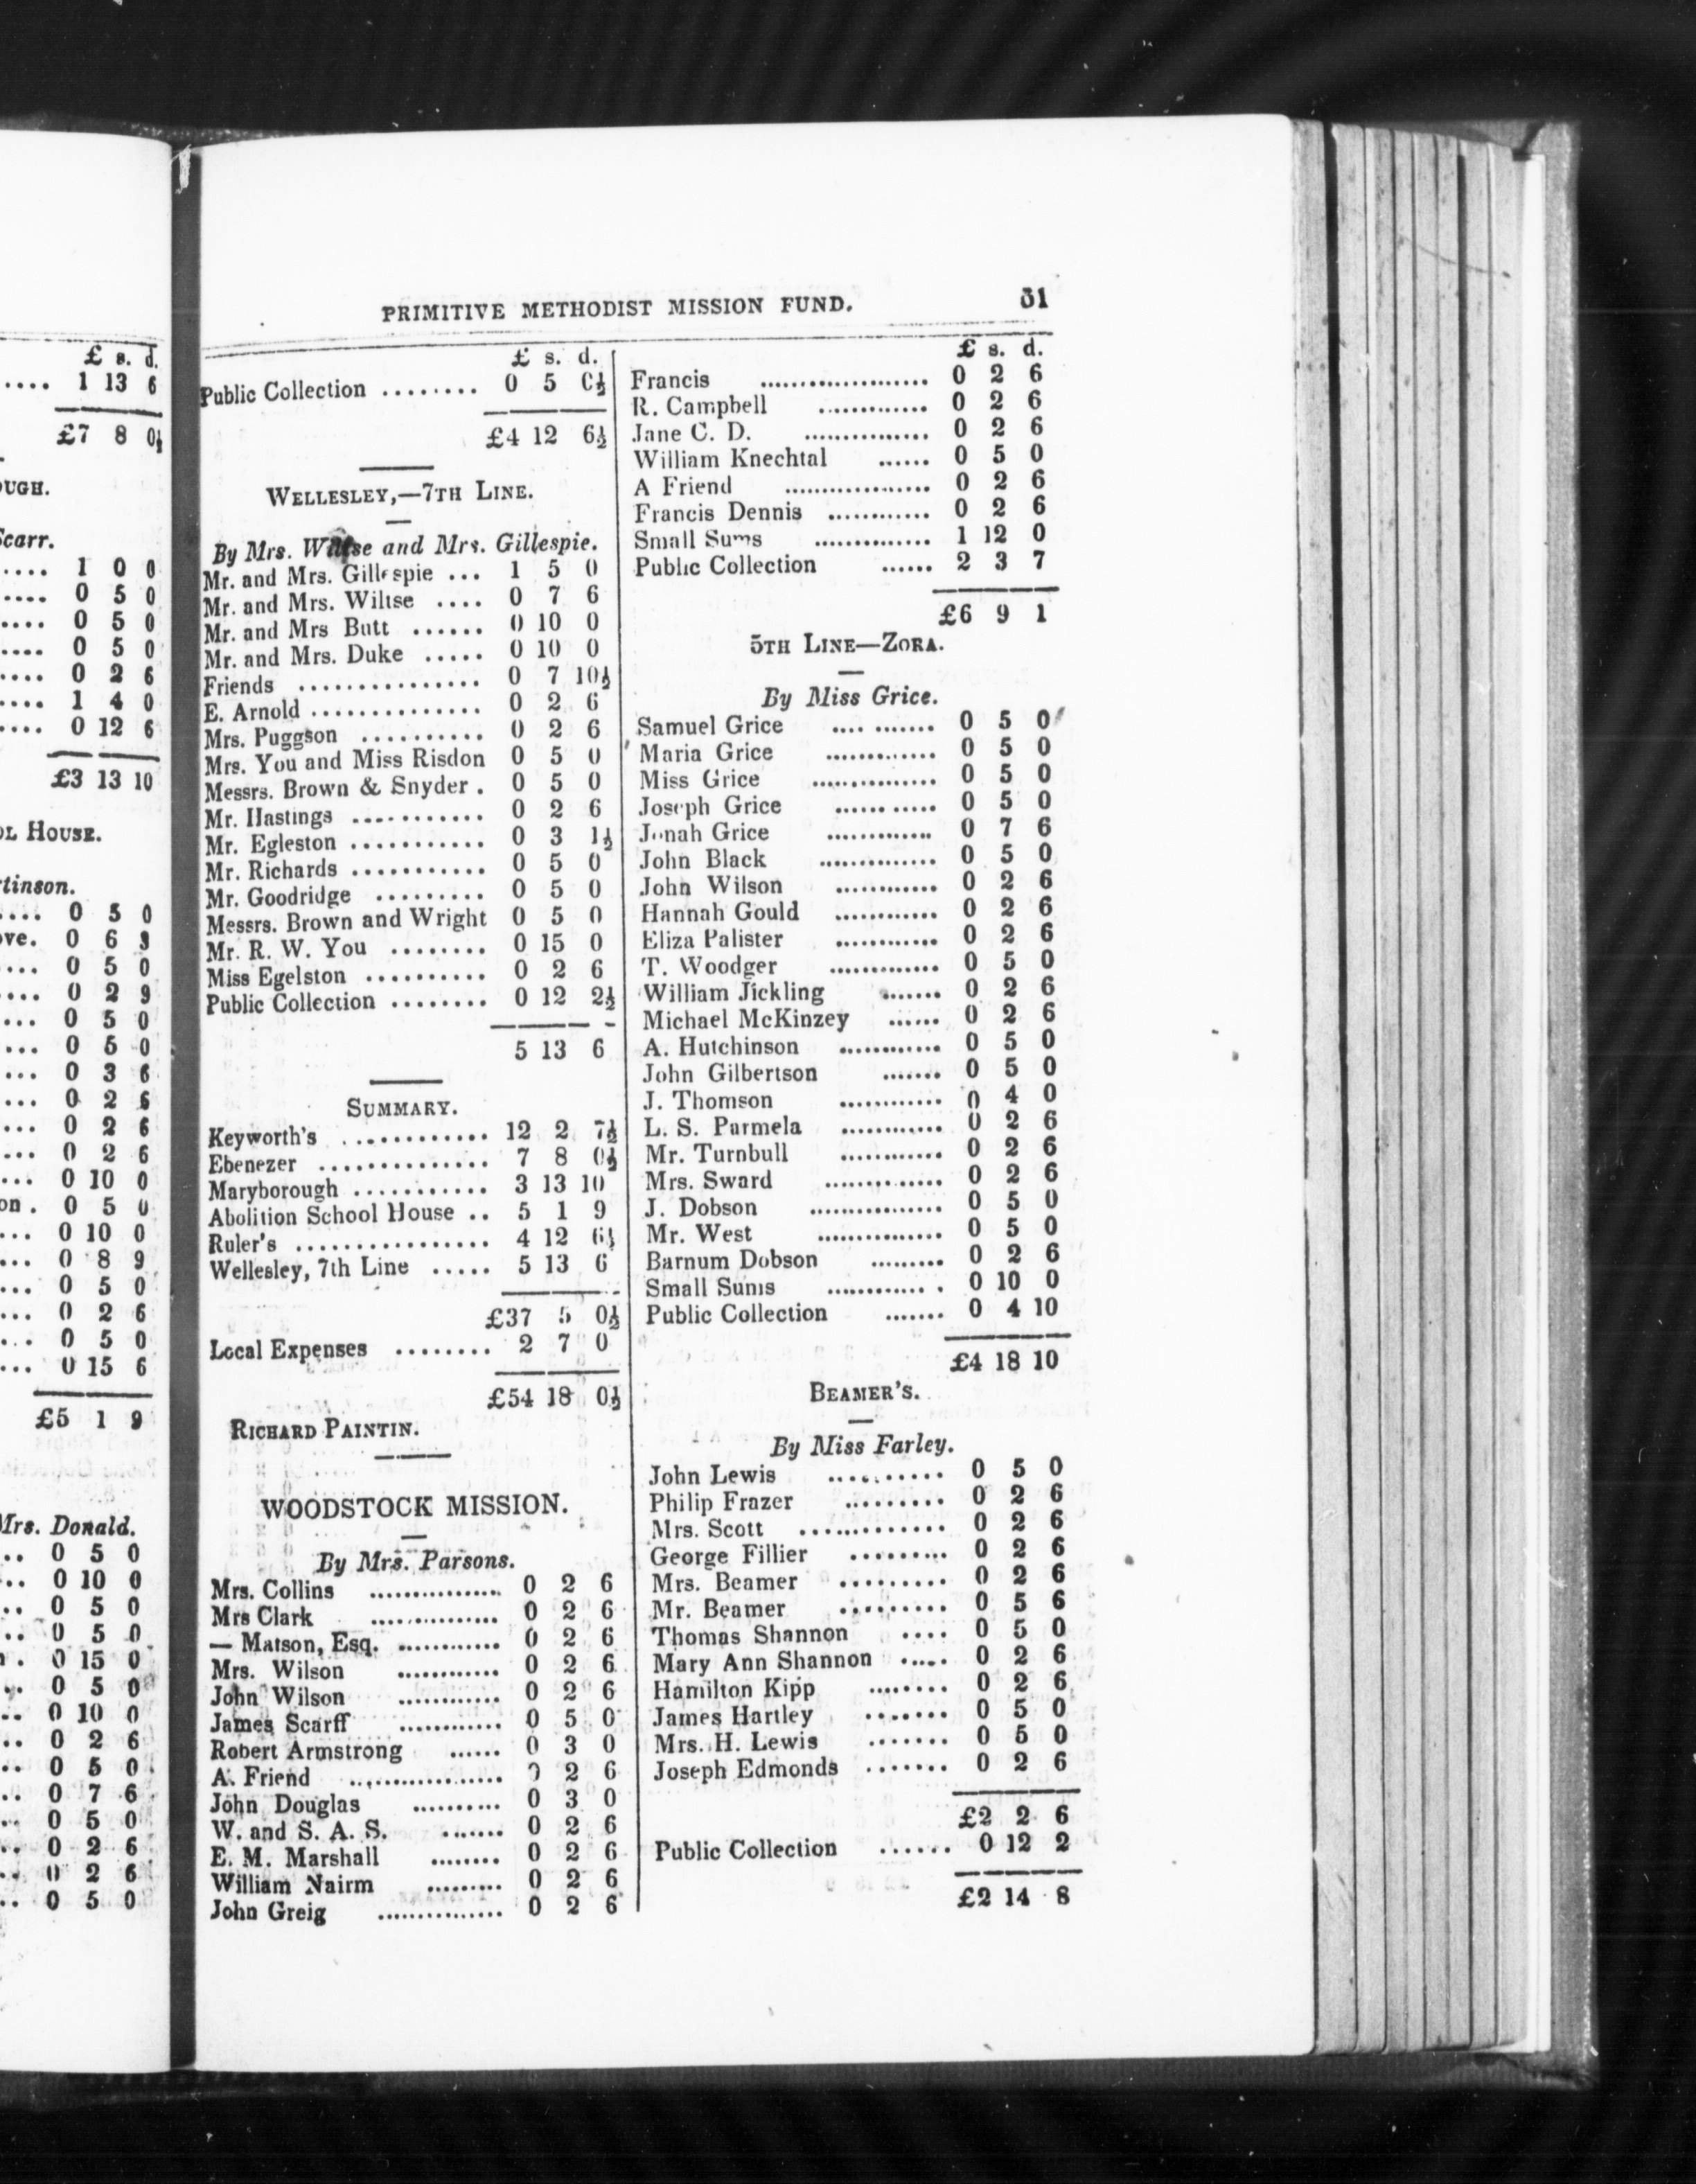 £ s. d.
.... 1 13 6
£7 8 0½
UGH.
Scarr.
.... 1 0 0
.... 0 5 0
.... 0 5 0
.... 0 5 0
.... 0 2 6
.... 1 4 0
.... 0 12 6
£3 13 10
OL HOUSE.
tinson.
.... 0 5 0
ove. 0 6 3
... 0 5 0
... 0 2 9
... 0 5 0
... 0 5 0
... 0 3 6
... 0 2 6
... 0 2 6
... 0 2 6
... 0 10 0
on . 0 5 0
... 0 10 0
... 0 8 9
... 0 5 0
... 0 2 6
... 0 5 0
... 0 15 6
£5 1 9
Mrs. Donald.
.. 0 5 0
.. 0 10 0
.. 0 5 0
.. 0 5 0
. 0 15 0
.. 0 5 0
.. 0 10 0
.. 0 2 6
.. 0 5 0
.. 0 7 6
.. 0 5 0
.. 0 2 6
.. 0 2 6
.. 0 5 0
PRIMITIVE METHODIST MISSION FUND. 51
£ s. d.
Public Collection ........ 0 5 0½
£4 12 6½
WELLESLEY,—7TH LINE.
By Mrs. Wiltse and Mrs. Gillespie.
Mr. and Mrs. Gillespie ... 1 5 0
Mr. and Mrs. Wiltse .... 0 7 6
Mr. and Mrs Butt ...... 0 10 0
Mr. and Mrs. Duke ..... 0 10 0
Friends ............... 0 7 10½
E. Arnold .............. 0 2 6
Mrs. Puggson .......... 0 2 6
Mrs. You and Miss Risdon 0 5 0
Messrs. Brown & Snyder . 0 5 0
Mr. Hastings ........... 0 2 6
Mr. Egleston ........... 0 3 1½
Mr. Richards ........... 0 5 0
Mr. Goodridge ......... 0 5 0
Messrs. Brown and Wright 0 5 0
Mr. R. W. You ........ 0 15 0
Miss Egelston .......... 0 2 6
Public Collection ........ 0 12 2½
5 13 6
SUMMARY.
Keyworth's ............ 12 2 7½
Ebenezer .............. 7 8 0½
Maryborough ........... 3 13 10
Abolition School House .. 5 1 9
Ruler's ................ 4 12 6½
Wellesley, 7th Line ..... 5 13 6
£37 5 0½
Local Expenses ........ 2 7 0
£54 18 0½
RICHARD PAINTIN.
WOODSTOCK MISSION.
By Mrs. Parsons.
Mrs. Collins ............... 0 2 6
Mrs Clark ............... 0 2 6
— Matson, Esq. ............ 0 2 6
Mrs. Wilson ............ 0 2 6
John Wilson ............ 0 2 6
James Scarff ............ 0 5 0
Robert Armstrong ...... 0 3 0
A. Friend .................. 0 2 6
John Douglas .......... 0 3 0
W. and S. A. S. ....... 0 2 6
E. M. Marshall ........ 0 2 6
William Nairm ......... 0 2 6
John Greig ............... 0 2 6
£ s. d.
Francis .................... 0 2 6
R. Campbell ............. 0 2 6
Jane C. D. ............... 0 2 6
William Knechtal ...... 0 5 0
A Friend ................. 0 2 6
Francis Dennis ............ 0 2 6
Small Sums .............. 1 12 0
Public Collection ...... 2 3 7
£6 9 1
5TH LINE—ZORA.
By Miss Grice.
Samuel Grice .... ....... 0 5 0
Maria Grice ............. 0 5 0
Miss Grice ............... 0 5 0
Joseph Grice ...... ..... 0 5 0
Jonah Grice ............. 0 7 6
John Black .............. 0 5 0
John Wilson ............ 0 2 6
Hannah Gould ............ 0 2 6
Eliza Palister ............ 0 2 6
T. Woodger ............. 0 5 0
William Jickling ....... 0 2 6
Michael McKinzey ...... 0 2 6
A. Hutchinson ............ 0 5 0
John Gilbertson ....... 0 5 0
J. Thomson ............ 0 4 0
L. S. Parmela ............ 0 2 6
Mr. Turnbull ............ 0 2 6
Mrs. Sward .............. 0 2 6
J. Dobson ................ 0 5 0
Mr. West ............... 0 5 0
Barnum Dobson ......... 0 2 6
Small Sums ............ . 0 10 0
Public Collection ....... 0 4 10
£4 18 10
BEAMER'S.
By Miss Farley.
John Lewis ........... 0 5 0
Philip Frazer ......... 0 2 6
Mrs. Scott .............. 0 2 6
George Fillier ......... 0 2 6
Mrs. Beamer ......... 0 2 6
Mr. Beamer ......... 0 5 6
Thomas Shannon .... 0 5 0
Mary Ann Shannon ..... 0 2 6
Hamilton Kipp ........ 0 2 6
James Hartley ....... 0 5 0
Mrs. H. Lewis ....... 0 5 0
Joseph Edmonds ....... 0 2 6
£2 2 6
Public Collection ...... 0 12 2
£2 14 8